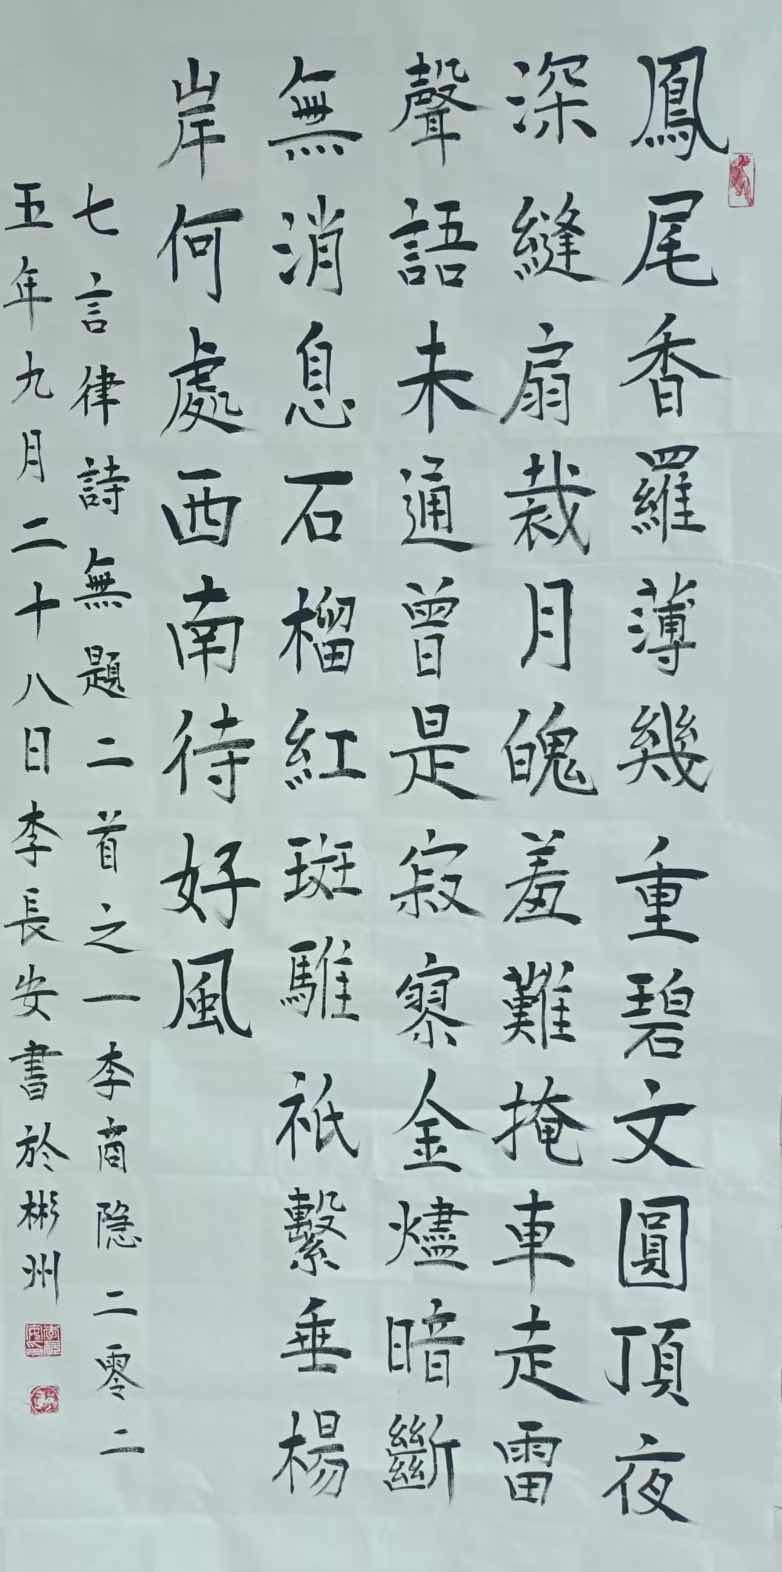 鳳尾香羅薄幾重碧文圓頂夜
深縫扇裁月魄羞難掩車走雷
聲語未通曾是寂寥金燼暗斷
無消息石榴紅斑騅祇繫垂楊
岸何處西南待好風
七言律詩無題二首之一李商隐二零二
五年九月二十八日李長安書於彬州